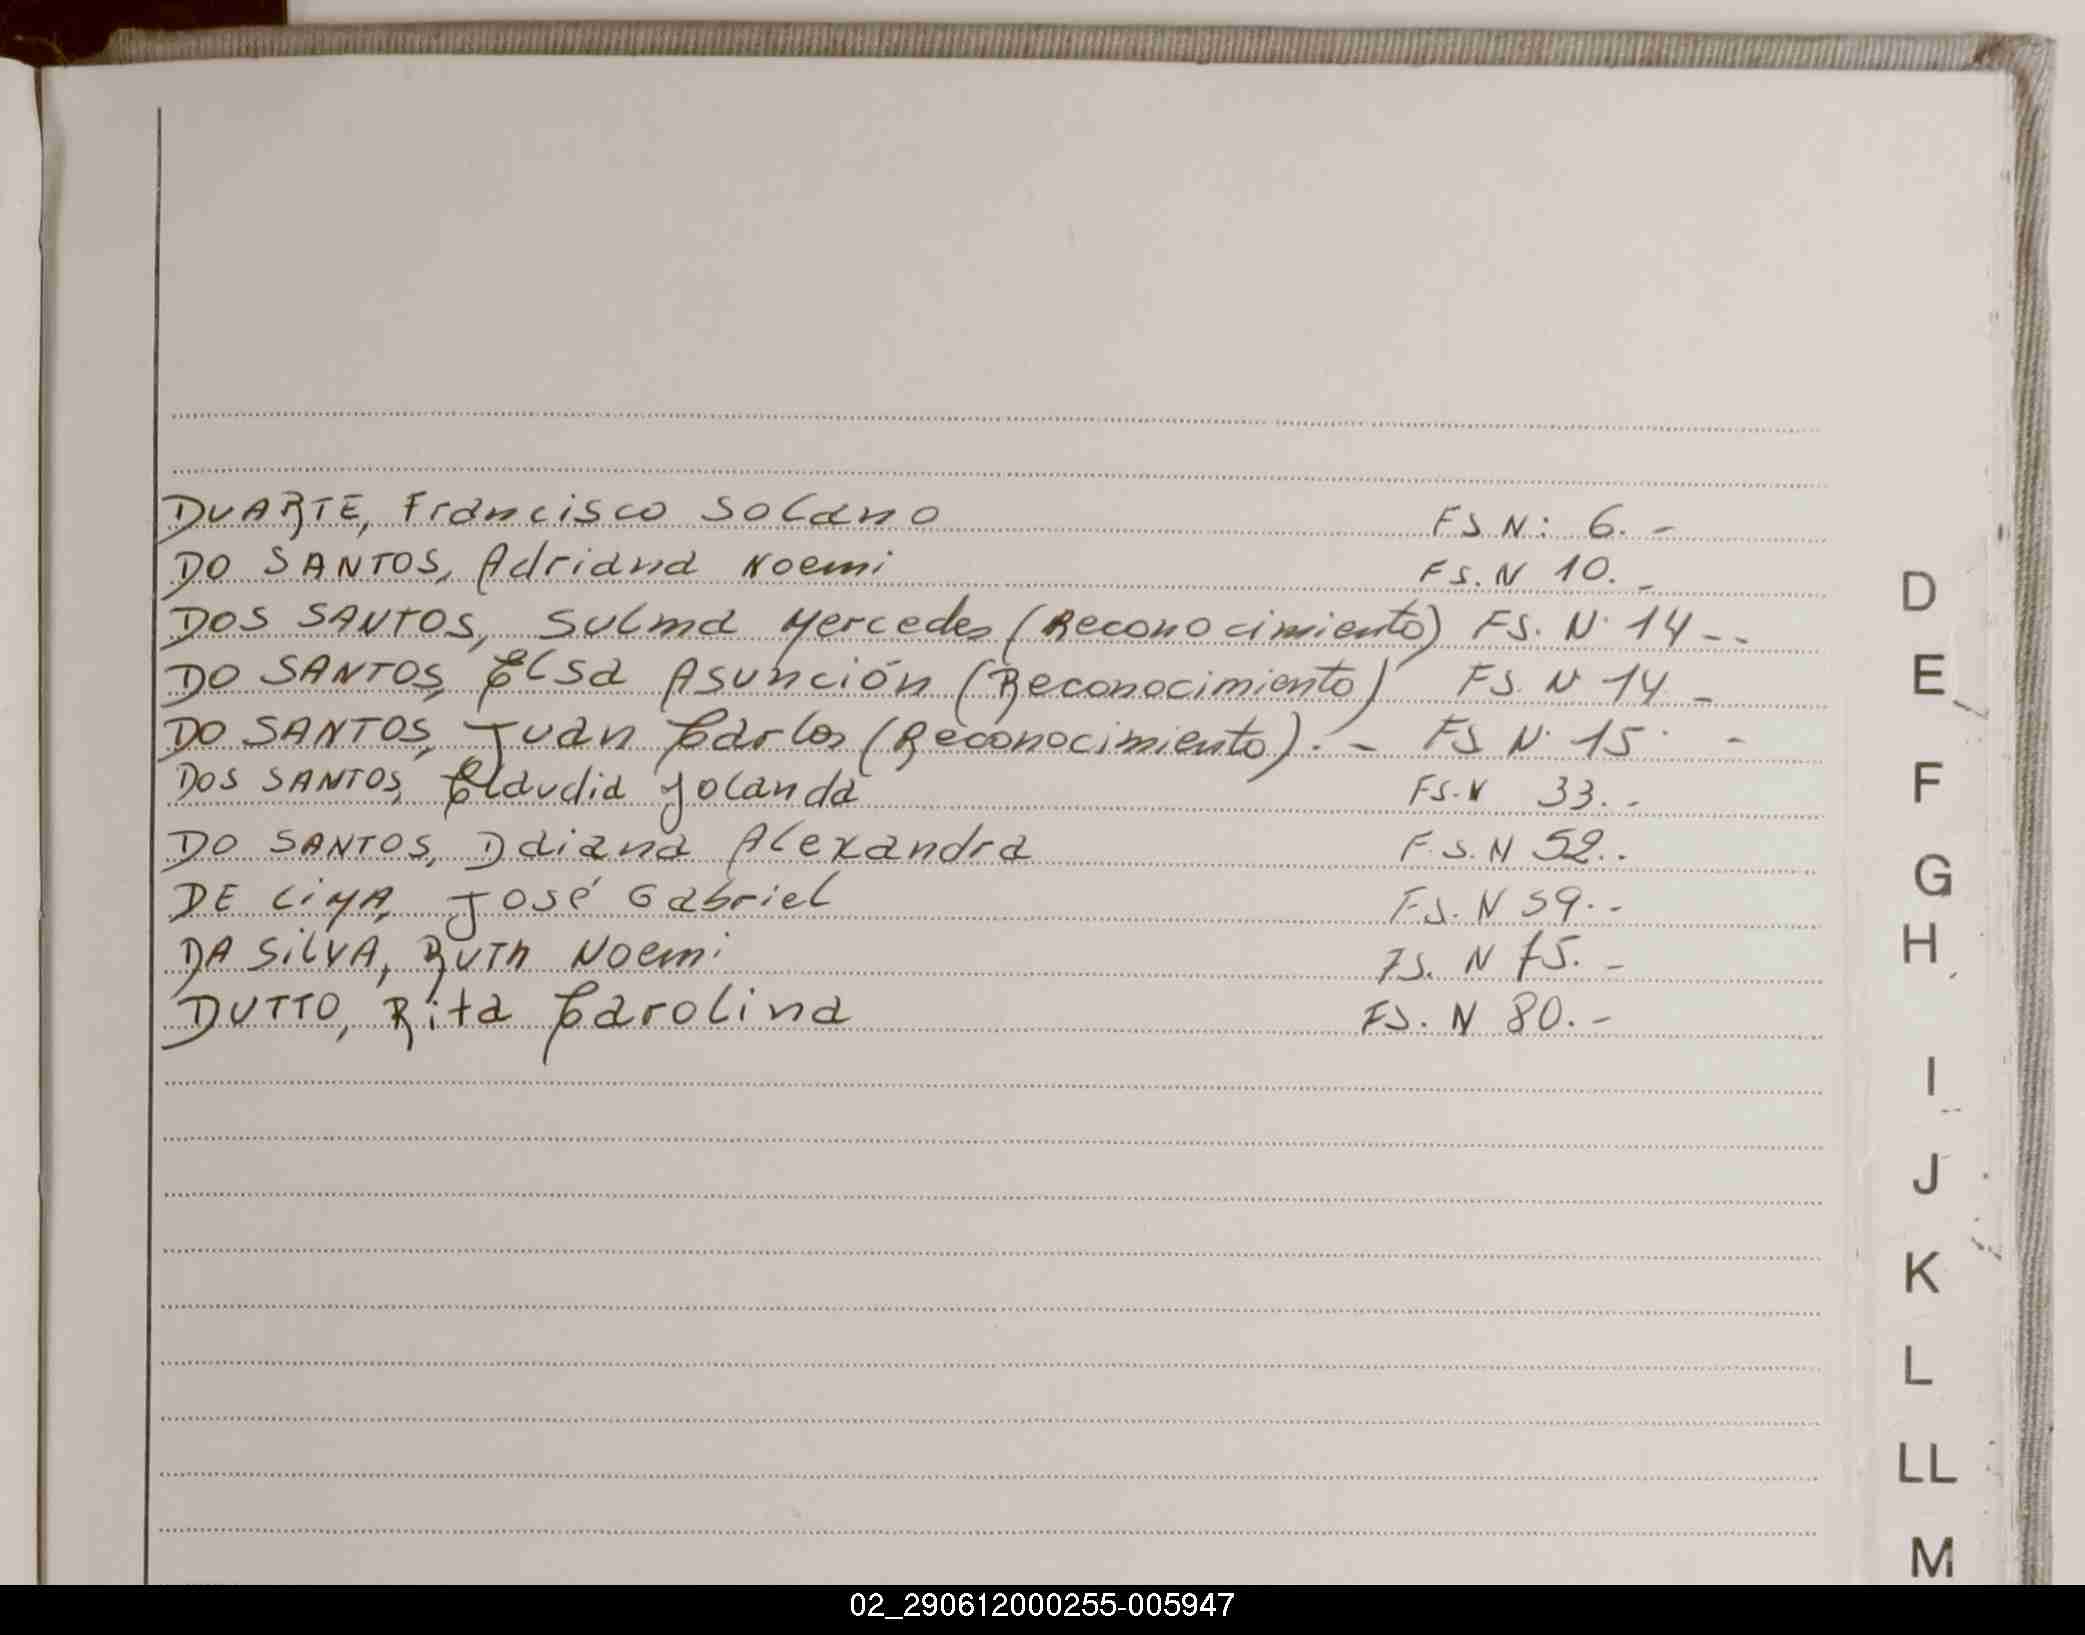 DUARTE, Francisco Solano FS N: 6.-
DO SANTOS, Adriana Noemi FS. N 10.-
DOS SANTOS, Sulma Mercedes (Reconocimiento) FS. N. 14--
DO SANTOS, Elsa Asunción (Reconocimiento) FS. N 14-
DO SANTOS, Juan Carlos (Reconocimiento).- FS N. 15. -
DOS SANTOS, Claudia Yolanda FS. N 33.-
DO SANTOS, Daiana Alexandra F.S. N 52..
DE LiMA, José Gabriel F.S. N 59.-
DA SiLVA, Ruth Noemi FS. N 75.-
DUTTO, Rita Carolina FS. N 80.-
D
E
F
G
H
I
J
K
L
LL
M
02_290612000255-005947